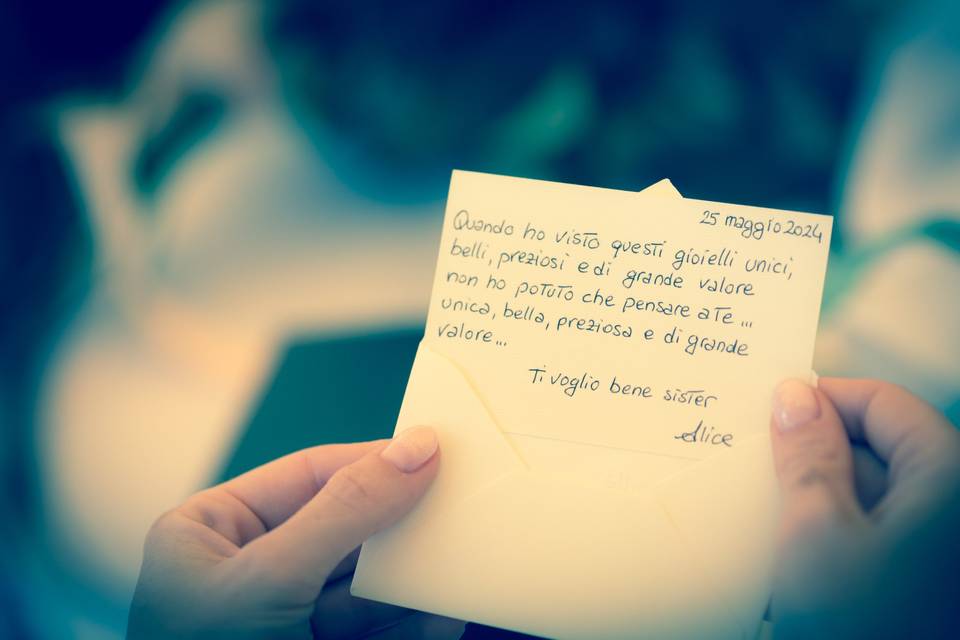 25 maggio 2024
Quando ho visto questi gioielli unici,
belli, preziosi e di grande valore
non ho potuto che pensare a te...
unica, bella, preziosa e di grande
valore...
Ti voglio bene sister
Alice